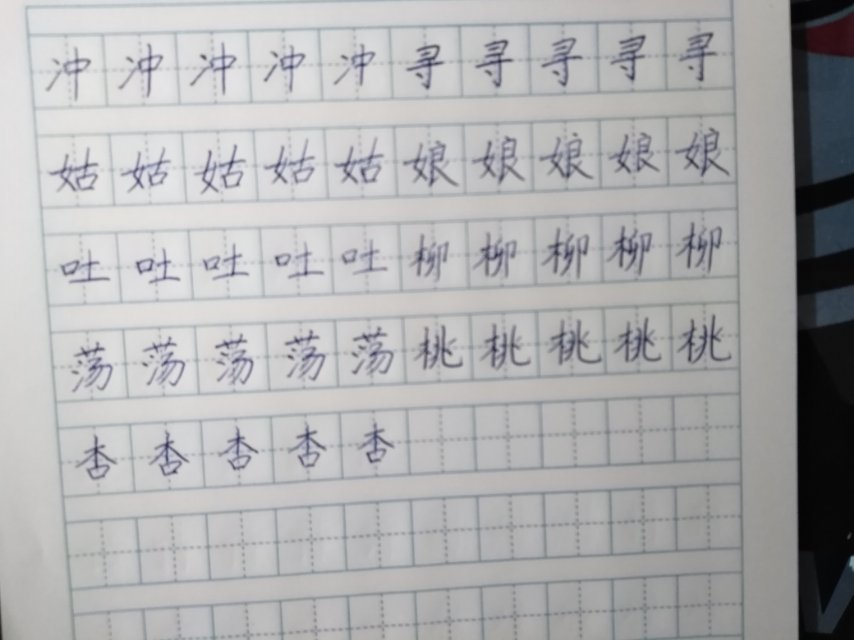 冲冲冲冲冲寻寻寻寻寻
姑姑姑姑姑娘娘娘娘娘
吐吐吐吐吐柳柳柳柳柳
荡荡荡荡荡桃桃桃桃桃
杏杏杏杏杏